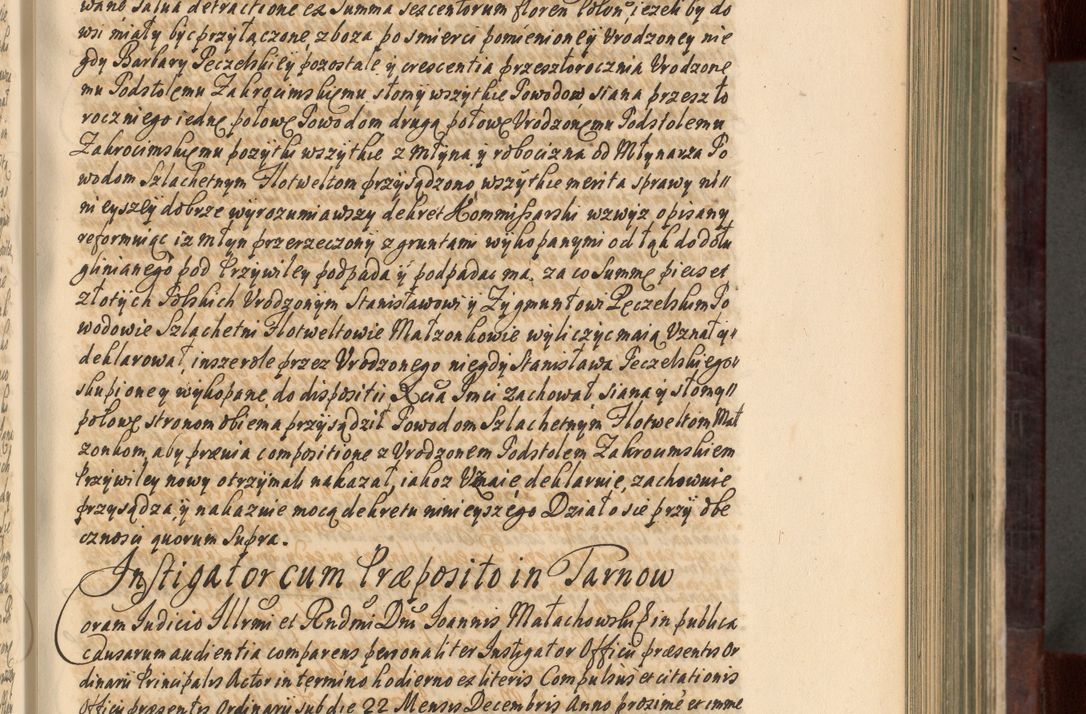 wane Salua detractione ex Summa sexcentorum floren Polon, ieżeli by do
wsi miały być przyłączone, zboza po smierci pomienioney Vrodzoney nie
gdy Barbary Pęczelskiey pozostałe y crescentia przeszłorocznia Vrodzone
mu Podstolemu Zakrocimskiemu słomy wszytkie Powodow siana przeszło
rocznie go iednę połowę Powodom drugą połowę Vrodzonemu Podstolemu
Zakrocimskiemu pozytki wszytkie z Młyna y robocizna od Młynarza Po
wodom Szlachetnym Flotweltom przysądzono, wszytkie merita sprawy ni〃
nieyszey dobrze wyrozumiawszy dekret Kommissarski wzwyż opisany
reformuiąc iz młyn przerzeczony z gruntami wykopanymi od łąk do dołu
glinianego pod Przywiley podpada y podpadac ma. za co Summę piecset
złotych Polskich Vrodzonym Stanisławowi y Zygmuntowi Pęczelskim Po
wodowie Szlachetni Flotweltowie Małzonkowie wyliczyc maią Vznał y〃
deklarował, inszerole przez Vrodzonego niegdy Stanisława Peczelskiego〃
skupioney wykopane do dispositii Xcia Jmci zachował siana y słomy〃
połowę stronom obiema przysądził Powodom Szlachetnym Flotweltom Mał
zonkom, aby prævia compositione z Vrodzonem Podstolem Zakrocimskiem
Przywiley nowy otrzymali nakazał, iakoz Vznaie, deklaruie, zachowuie
przysądza, y nakazuie mocą dekretu ninieyszego Działo sie przy obe
cznosci quorum Supra.
Instigator cum Præposito in Tarnow
Coram Iudicio Illrmi et Rndmi Dni Ioannis Małachowski in publica
Causarum audientia comparens personaliter Instigator Officii præsentis Or
dinarii Principalis Actor in termino hodierno ex literis Compulsus et citationis
Officii præsentis Ordinarii sub die 22 Mensis Decembris Anno proximé et imme